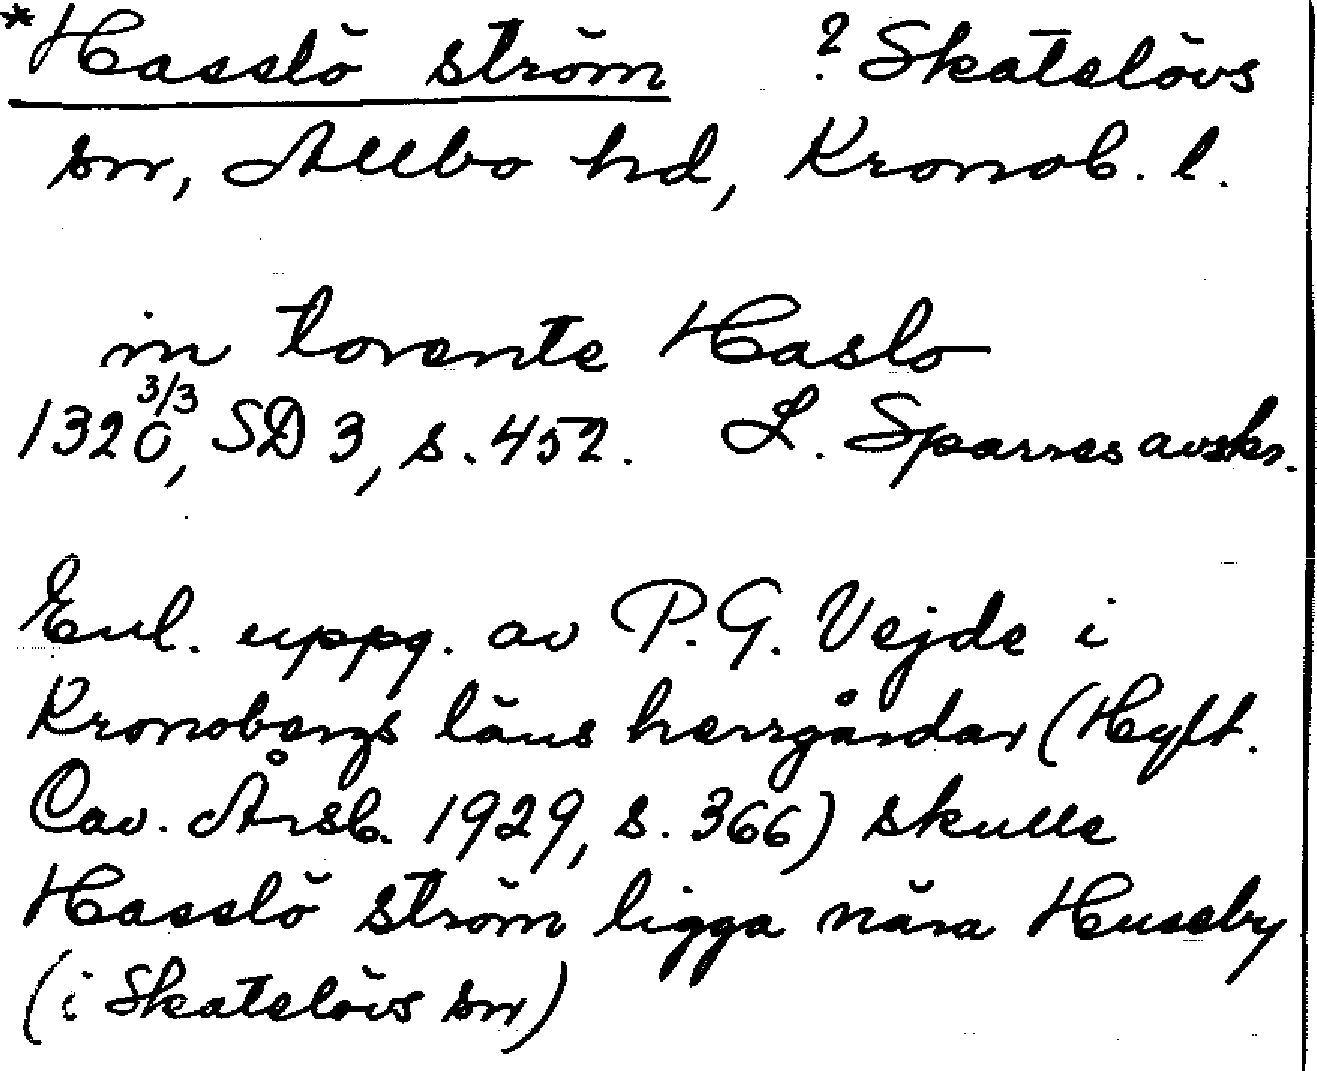 *Hasslö ström ? Skatelövs
sn, Allbo hd, Kronob. l.
in torente Haslo
1320 3/3, SD 3, s. 452. L. Sparres avskr.
Enl. uppg. av P. G. Vejde i
Kronobergs läns herrgårdar (Hylt.
Cav. Årsb. 1929, s. 366) skulle
Hasslö ström ligga nära Huseby
(i Skatelövs sn)